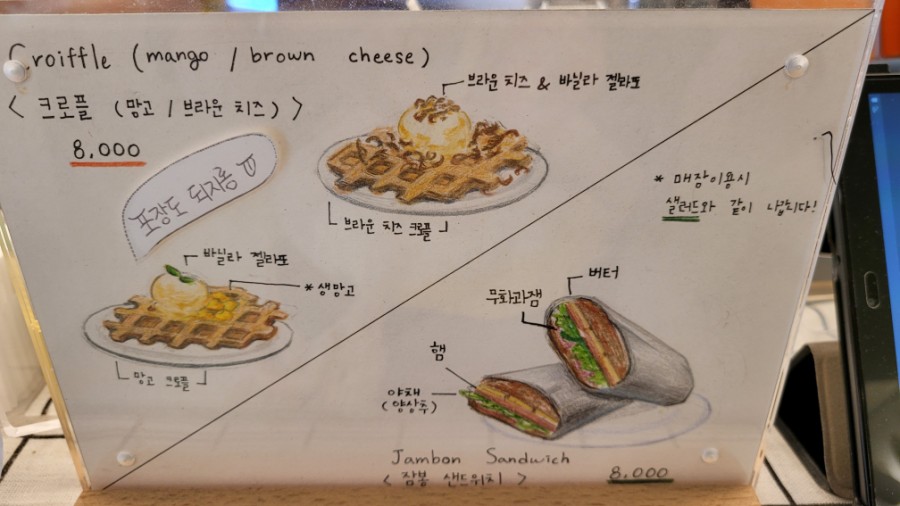 Croiffle (mango / brown cheese)
< 크로플 (망고 / 브라운 치즈) >
8,000
포장도 되지롱
브라운 치즈 & 바닐라 젤라또
브라운 치즈 크로플
바닐라 젤라또
* 생망고
망고 크로플
* 매장이용시
샐러드와 같이 나갑니다!
버터
무화과잼
햄
야채
(양상추)
Jambon Sandwich
< 잠봉 샌드위치 >
8,000